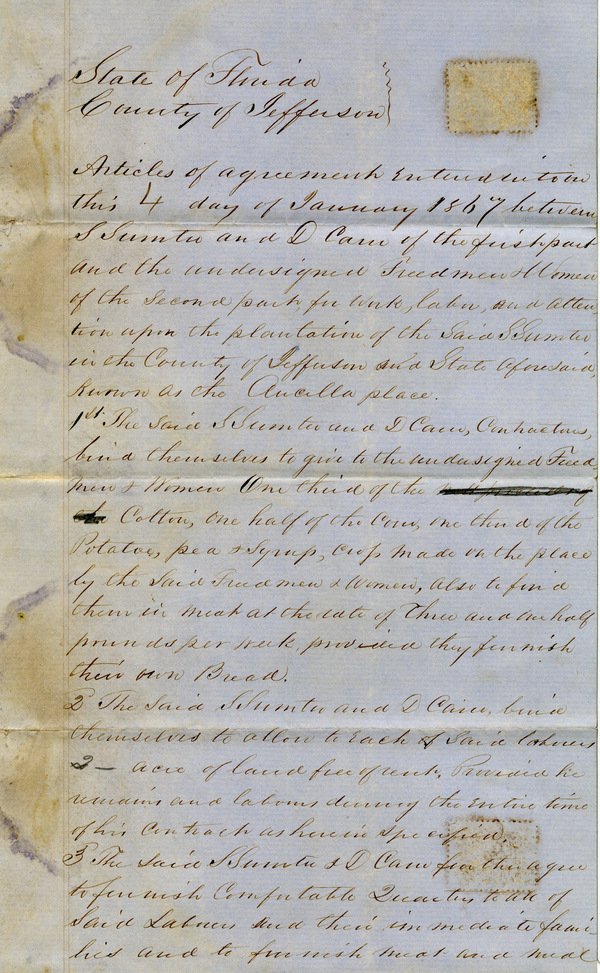 State of Florida
County of Jefferson
Articles of agreement entered into on
this 4 day of January 1867 between
S Sumter and D Cam of the first part
and the undersigned Freedmen & Women
of the second part, for work, labor, and atten
tion upon the plantation of the said S Sumter
in the County of Jefferson and State aforesaid,
known as the Aucilla place.
1st The said S Sumter and D Cam, Contractors,
bind themselves to give to the undersigned Freed
men & Women One third of the
Cotton, one half of the Corn, one third of the
Potatoe, pea & Syrup, crops made on the place
by the said Freedmen & Women, also to find
them in meat at the rate of Three and one half
pounds per week, provided they furnish
their own Bread.
2 The said S Sumter and D Cam, bind
themselves to allow to each of said laborers
2 - acre of land free of rent, Provided he
remains and labours during the entire time
of his contract as herein specified.
3 The said S Sumter & D Cam further agree
to furnish Comfortable Quarters to all of
said Laborers and their immediate fami-
lies and to furnish meat and meal